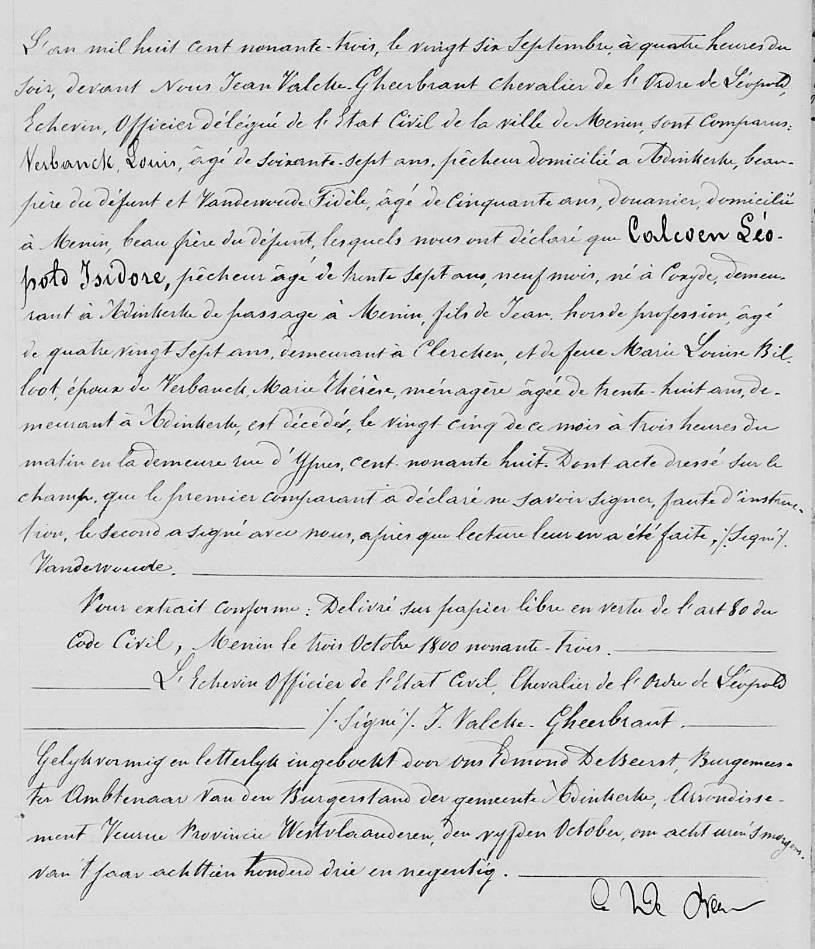 L'an mil huit cent nonante-trois, le vingt six Septembre, à quatre heures du
soir, devant Nous Jean Valcke-Gheerbrant Chevalier de l'Ordre de Léopold,
Echevin, Officier délégué de l'Etat Civil de la ville de Menin, sont Comparus:
Verbanck, Louis, âgé de soixante-sept ans, pêcheur domicilié a Adinkerke, beau-
père du défunt et Vandewoude Fidèle, âgé de Cinquante ans, douanier, domicilié
à Menin, beau frère du défunt, lesquels nous ont déclaré que Calcoen Léo-
pold Isidore, pêcheur âgé de trente sept ans, neuf mois, né à Coxyde, demeu-
rant à Adinkerke de passage à Menin, fils de Jean, hors de profession, âgé
de quatre vingt sept ans, demeurant à Clercken, et de feue Marie Louise Bil-
loot, époux de Verbanck, Marie Thérèse, ménagère âgée de trente-huit ans, de-
meurant à Adinkerke, est décédé, le vingt cinq de ce mois à trois heures du
matin en la demeure rue d'Ypres, cent-nonante huit. Dont acte dressé sur le
champ, que le premier comparant a déclaré ne savoir signer, faute d'instruc-
tion, le second a signé avec nous, après que lecture leur en a été faite, /. Signé /.
Vandewoude.
Pour extrait conforme: Delivré sur papier libre en vertu de l'art 80 du
Code Civil, Menin le trois Octobre 1800 nonante-trois.
L'Echevin Officier de l'Etat Civil, Chevalier de l'Ordre de Léopold
/. Signé /. J. Valcke-Gheerbrant.
Gelykvormig en letterlyk ingeboekt door ons Edmond Debeerst, Burgemees-
ter Ambtenaar van den Burgerstand der gemeente Adinkerke, Arrondisse-
ment Veurne Provincie Westvlaanderen, den vyfden October, om acht uren 's morgens
van 't jaar achttien honderd drie en negentig.